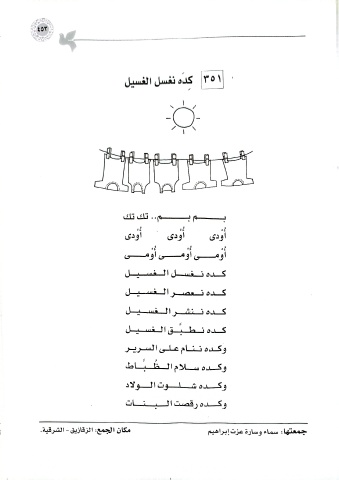 ٤٥٢
٣٥١ كِدَه نغسل الغسيل
بــم بــم.. تك تك
أُودى أُودى أُودى
أُومـى أُومـى أُومـى
كـده نـغـسـل الـغـسـيـل
كـده نـعـصـر الـغـسـيـل
كـده نـنـشـر الـغـسـيـل
كـده نـطـبَّـق الـغـسـيـل
وكـده نـنـام عـلـى السـريـر
وكـده سـلام الـظُّـبَّـاط
وكـده شـلـوت الـولاد
وكـده رقـصـت الـبـنـات
جمعتها: سماء وسارة عزت إبراهيم مكان الجمع: الزقازيق - الشرقية.